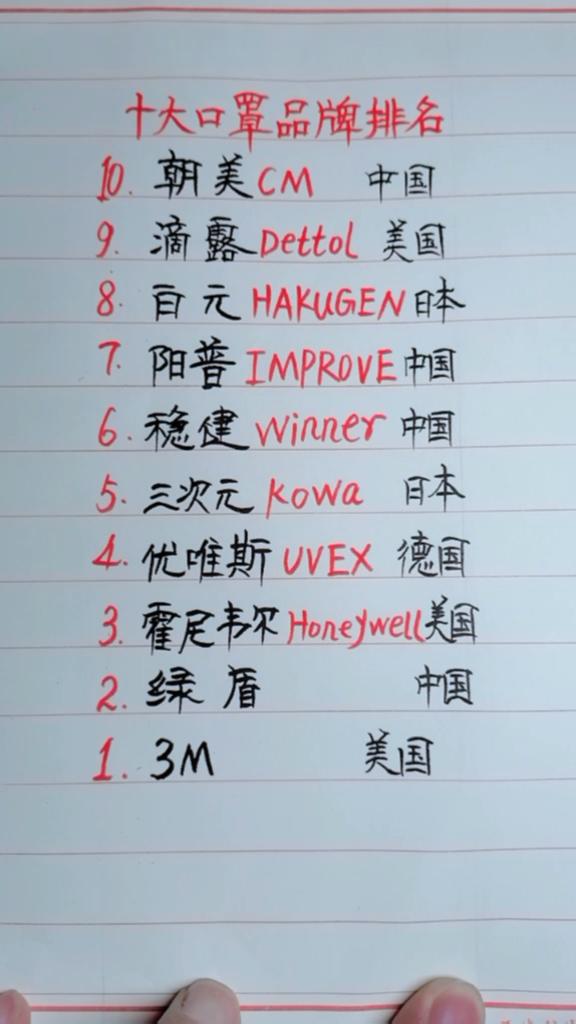 十大口罩品牌排名
10. 朝美CM 中国
9. 滴露Dettol 美国
8. 白元 HAKUGEN 日本
7. 阳普 IMPROVE 中国
6. 稳健 Winner 中国
5. 三次元 Kowa 日本
4. 优唯斯 UVEX 德国
3. 霍尼韦尔 Honeywell 美国
2. 绿盾 中国
1. 3M 美国